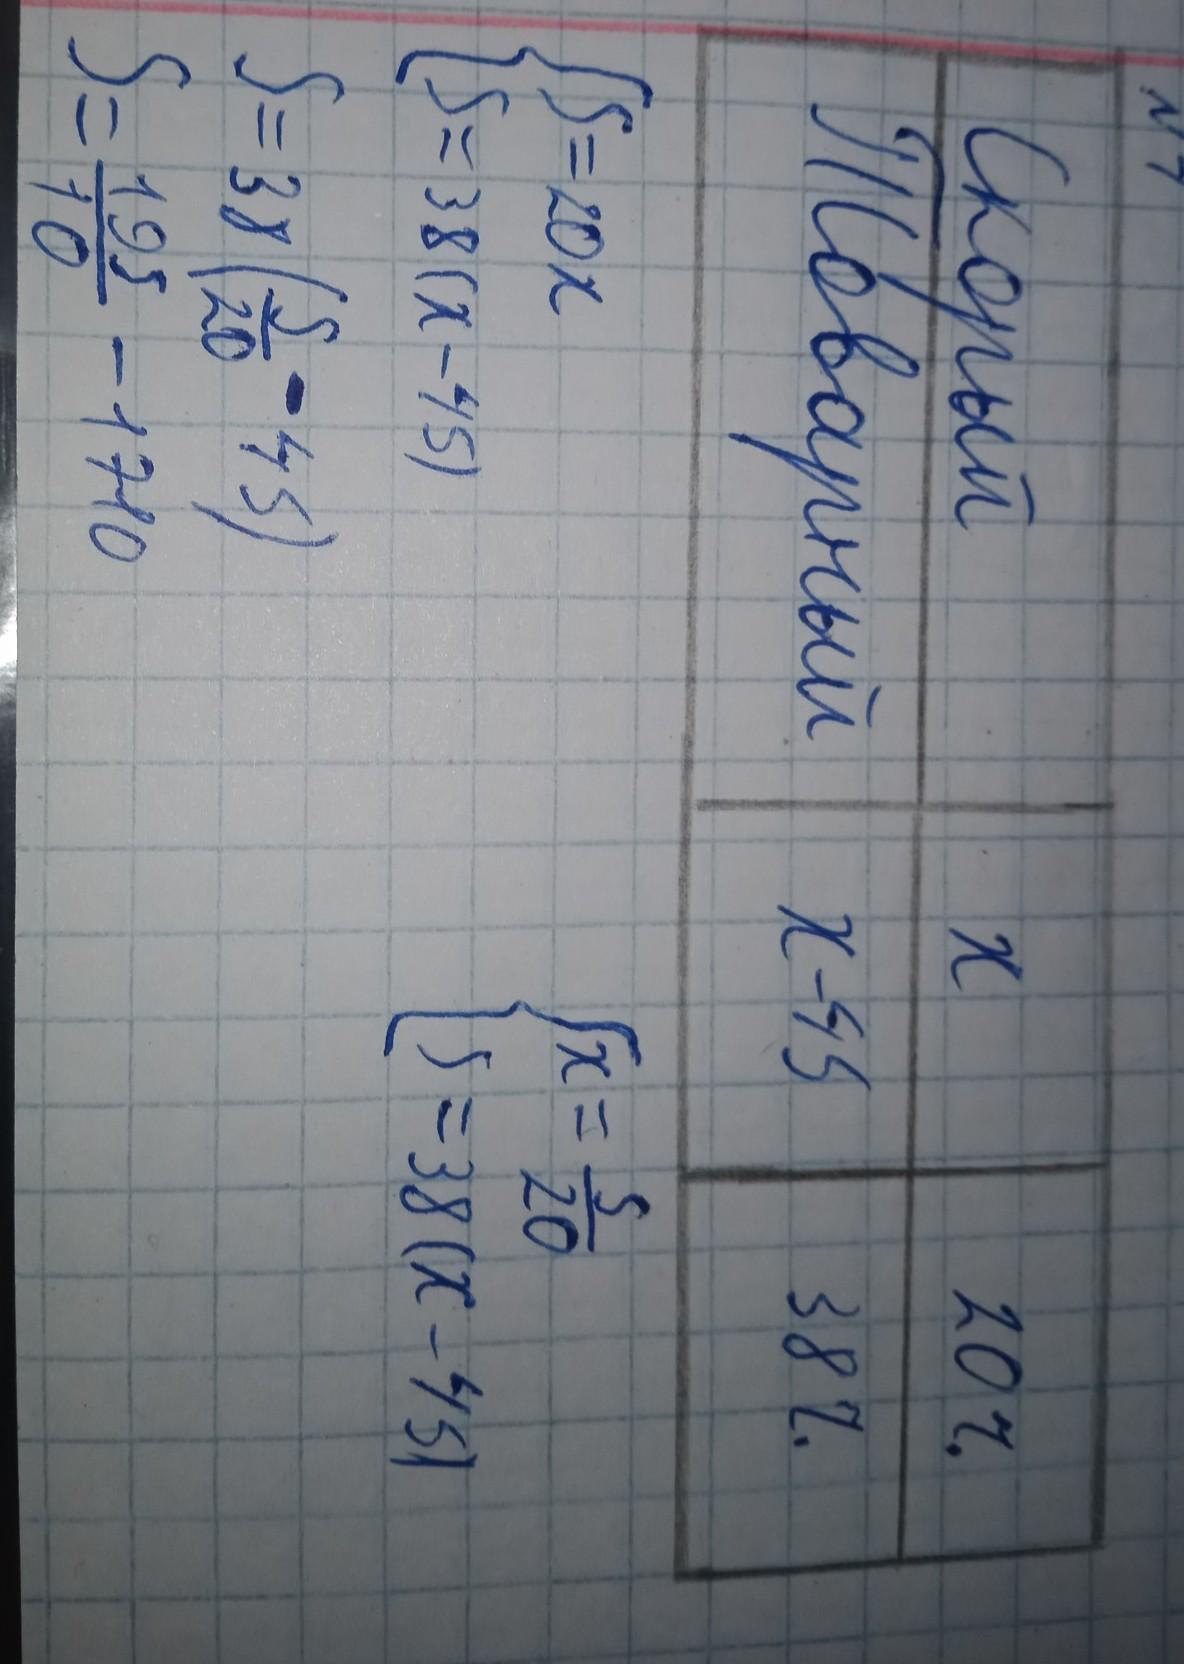 №1
Скорый x 20 ч.
Товарный x-45 38 ч.
{S=20x
{S=38(x-45)
{x=S/20
{S=38(x-45)
S=38(S/20-45)
S=19S/10-1710